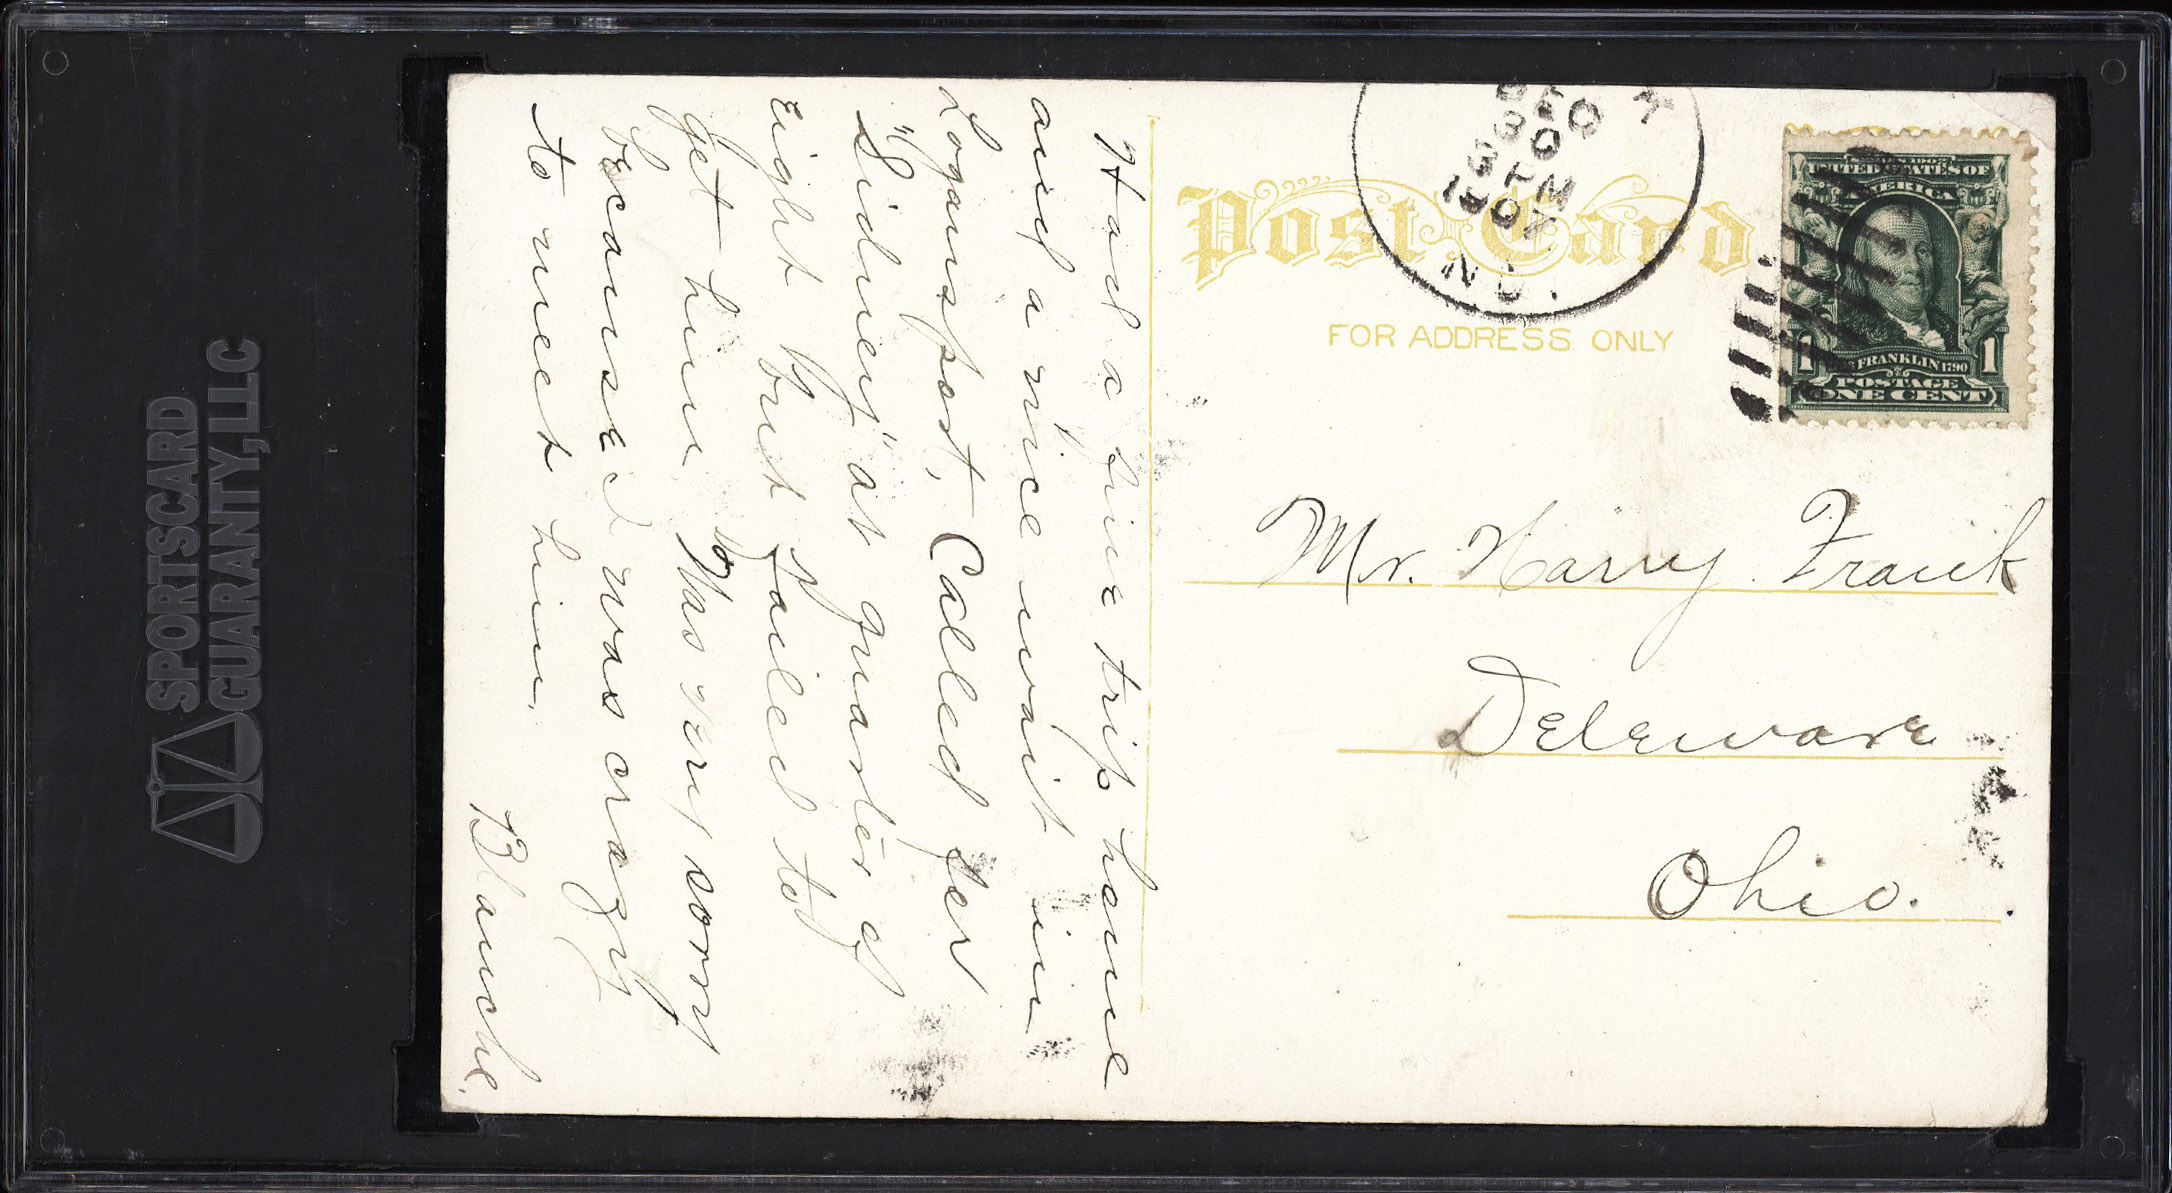 SPORTSCARD
GUARANTY, LLC
Had a fine trip home
and a nice wait in
Logansport. Called for
"Sidney" at quarter of
eight but failed to
get him. Was very sorry
because I was crazy
to meet him.
Blanche.
DEC
30
3 PM
1907
IND.
Post Card
FOR ADDRESS ONLY
UNITED STATES OF
AMERICA
1 FRANKLIN 1790 1
POSTAGE
ONE CENT
Mr. Harry Frank
Deleware
Ohio.